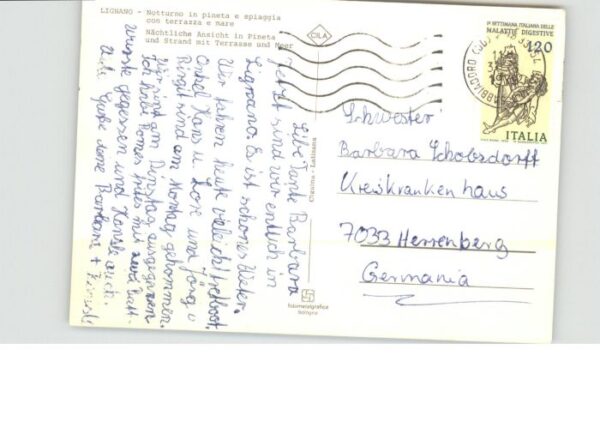 LIGNANO - Notturno in pineta e spiaggia
con terrazza e mare
Nächtliche Ansicht in Pineta
und Strand mit Terrasse und Meer
CILA
Libe Tante Barbara
Jetzt sind wir entlich in
Lignano. Es ist schönes Weter.
Wir fahren heute vieleicht Tretboot.
Onkel Hans u. Lore und Jörg u
Birgit sind am Montag gekommen.
Wir sind am Dinstag ausgegangen
Ich habe Pomes frites mit zwei Batt-
wurste gegessen und Hansle auch.
Viele Grüße deine Barbara +
fotometalgrafica
bologna
Schwester
Barbara Schobsdorff
Kreiskrankenhaus
7033 Herrenberg
Germania
1ª SETTIMANA ITALIANA DELLE
MALATTIE DIGESTIVE
120
ITALIA